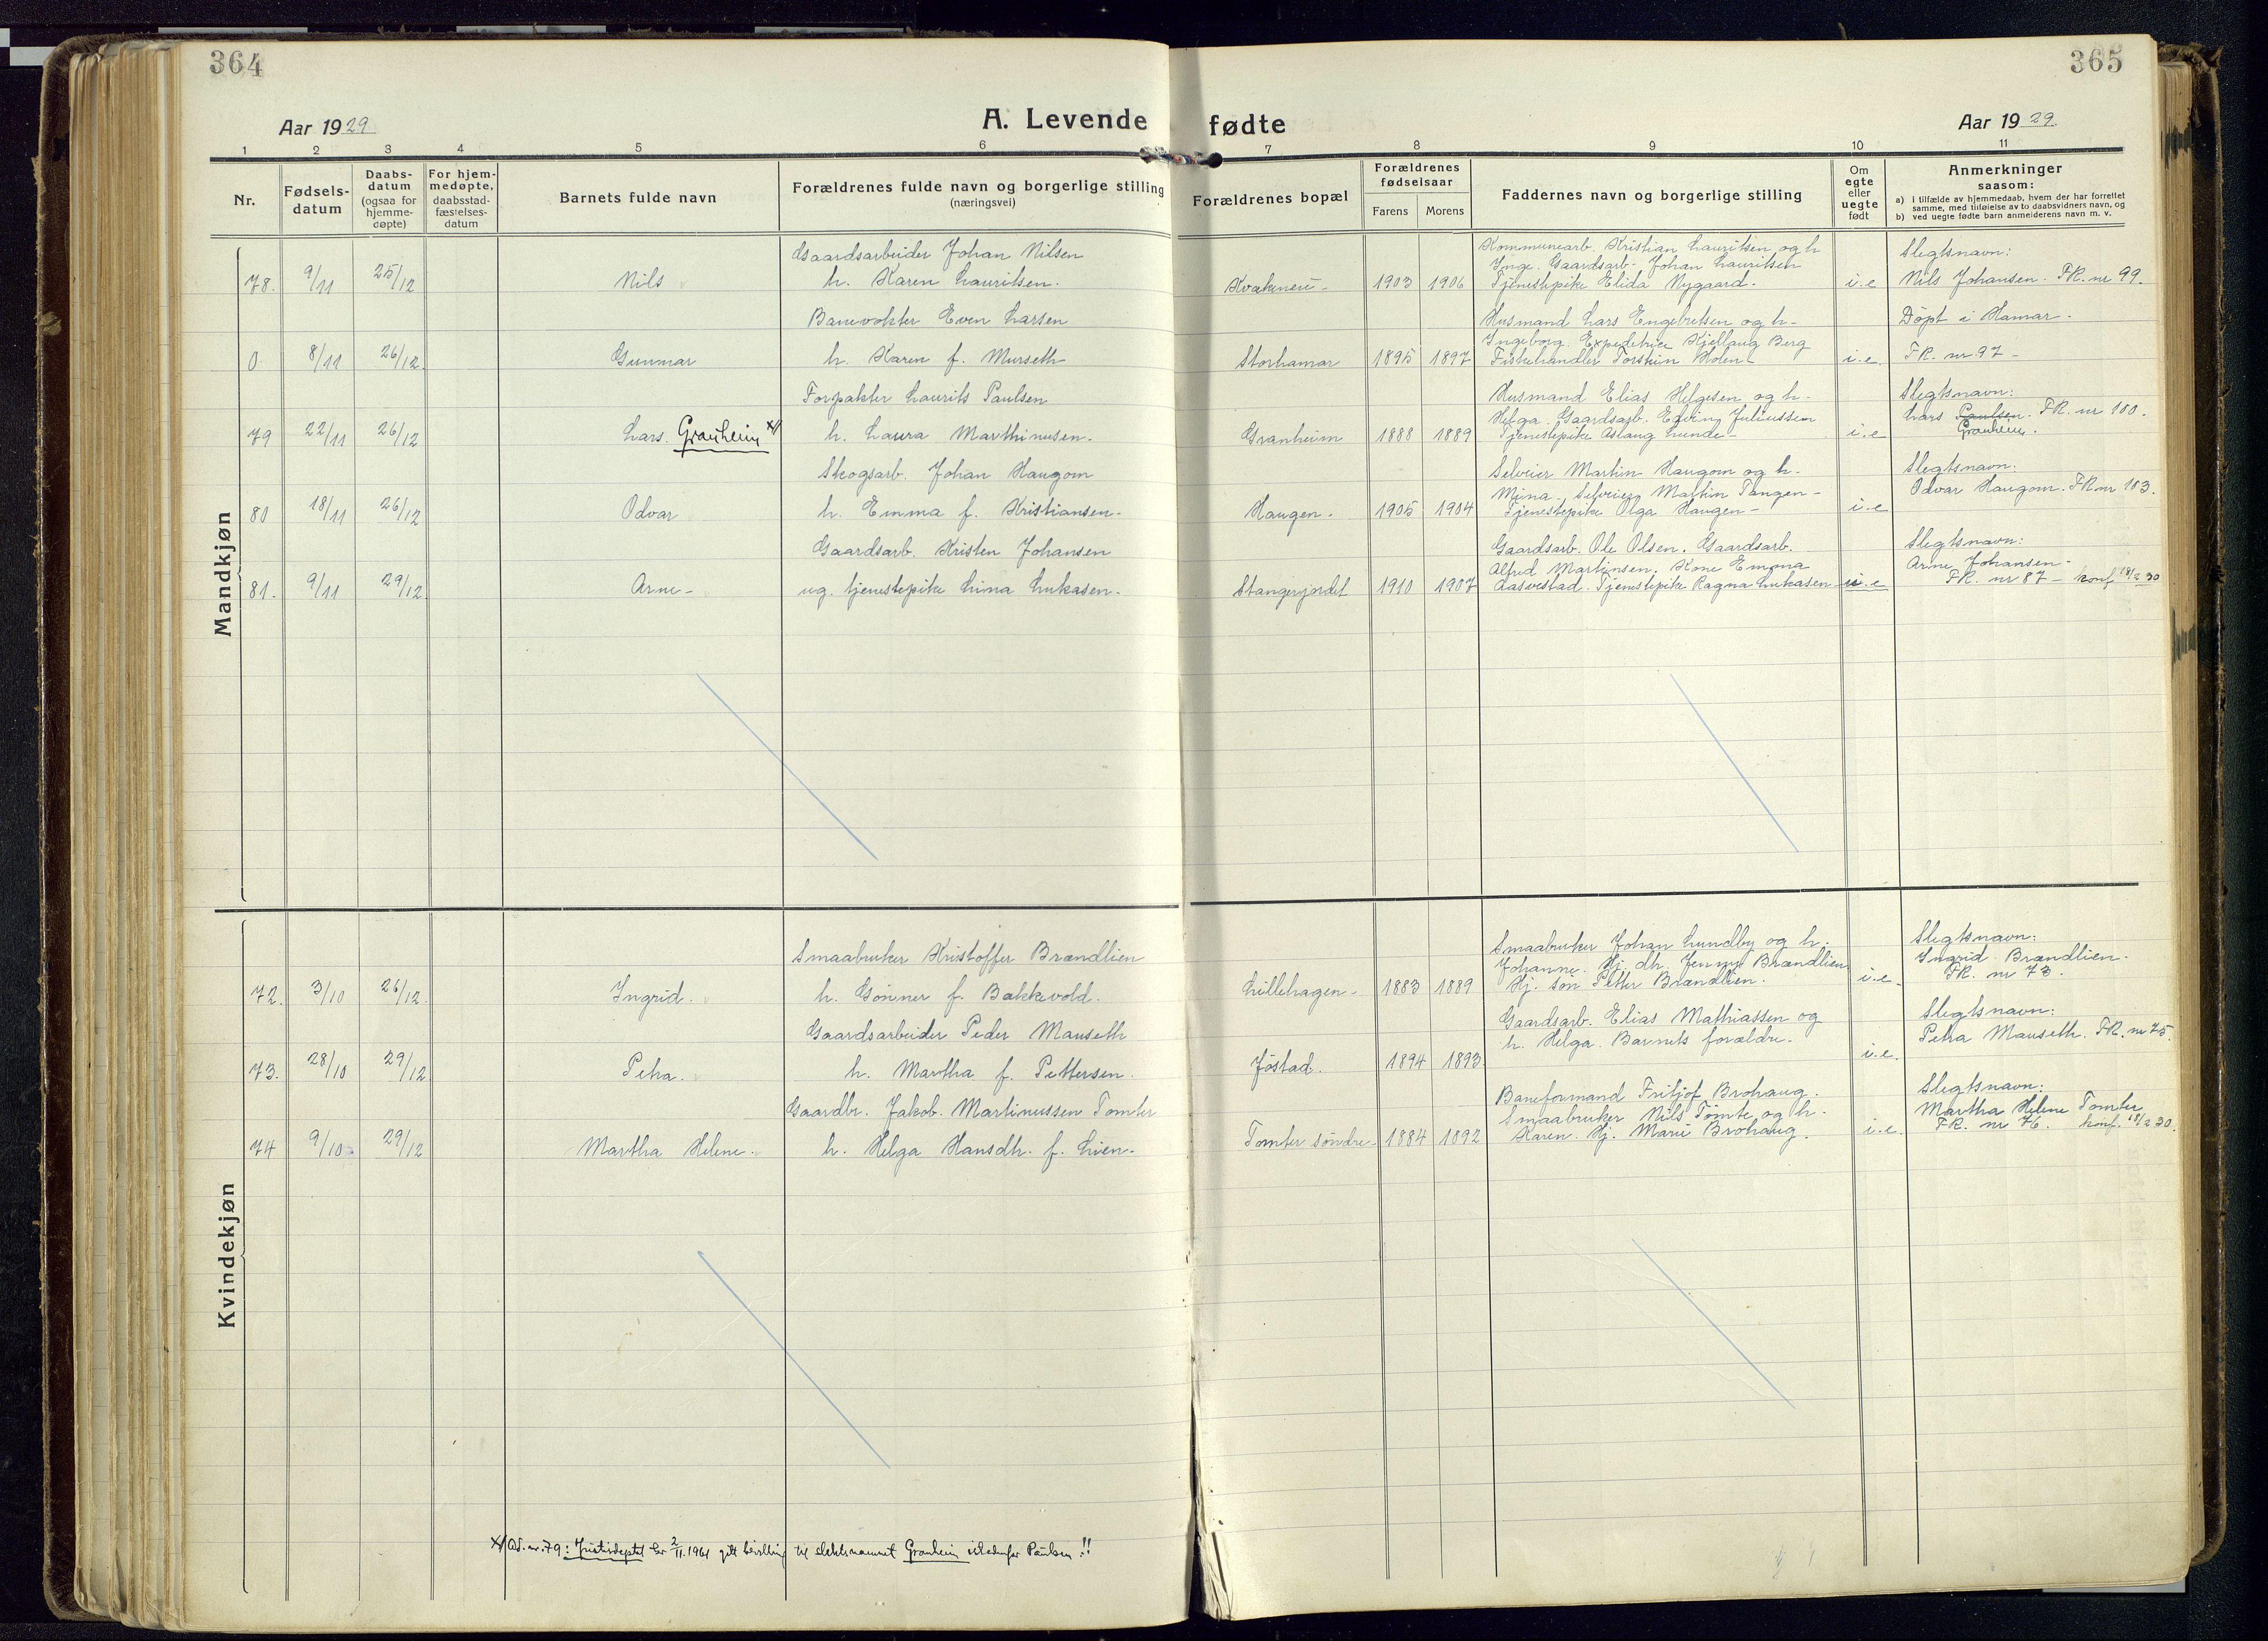 364
365
A. Levende fødte
Aar 1929
Aar 1929
1 2 3 4 5 6 7 8 9 10 11
Nr.
Fødselsdatum
Daabsdatum (ogsaa for hjemmedøpte)
For hjemmedøpte, daabsstadfæstelsesdatum
Barnets fulde navn
Forældrenes fulde navn og borgerlige stilling (næringsvei)
Forældrenes bopæl
Forældrenes fødselsaar
Farens Morens
Faddernes navn og borgerlige stilling
Om egte eller uegte født
Anmerkninger saasom:
a) i tilfælde av hjemmedaab, hvem der har forrettet samme, med tilføielse av to daabsvidners navn, og
b) ved uegte fødte barn anmelderens navn m. v.
Mandkjøn
Gaardsarbeider Johan Nilsen
Kommunearb. Kristian Lauritsen og h
Slegtsnavn:
Inge. Gaardsarb. Johan Lauritsen
78. 9/11 25/12 Nils h. Karen Lauritsen. 1903 1906 Tjenestepike Elida Nygaard. i.e Nils Johansen. FR. nr 99.
Banevokter Even Larsen
Husmand Lars Engebretsen og h-
Døpt i Hamar.
Ingeborg. Expeditrice Kjellaug Berg
0 8/11 26/12 Gunnar h. Karen f. Murseth Storhamar 1895 1897 Fiskehandler Torstein Holen i.e. FR. nr 97-
Forpakter Laurits Paulsen
Husmand Elias Helgesen og h-
Slegtsnavn:
Helga. Gaardsarb. Edvin Juliussen
Lars Paulsen. FR. nr 100.
79 22/11 26/12 Lars. Granheim x/ h. Laura Marthinusen. Granheim 1888 1889 Tjenestepike Aslaug Lunde- i.e Granheim.
Skogsarb. Johan Haugom
Selveier Martin Haugom og h-
Slegtsnavn:
Mina-, Selveier Martin Tangen-
Odvar Haugom. FR nr 103.
80 18/11 26/12 Odvar h. Emma f. Kristiansen. Haugen. 1905 1904 Tjenestepike Olga Haugen- i.e
Gaardsarb. Kristen Johansen
Gaardsarb. Ole Olsen. Gaardsarb.
Slegtsnavn:
Alfred Martinsen. Kone Emma
Arne Johansen-
81. 9/11 29/12 Arne- ug. tjenestepike Lina Lukasen. Stangerjordet 1910 1907 Aasvestad. Tjenestepike Ragna Lukasen u.e FR. nr 87- konf 18/2 30
Kvindekjøn
Smaabruker Kristoffer Brændlien
Smaabruker Johan Lundby og h.
Slegtsnavn:
Johanne. Hj. dh. Jenny Brændlien
Ingrid Brændlien.
72. 3/10 26/12 Ingrid. h. Gønner f. Bakkevold. Lillehagen- 1883 1889 Hj. søn Petter Brændlien. i.e. FR. nr 73.
Gaardsarbeider Peder Mauseth
Gaardsarb. Elias Mathiassen og
Slegtsnavn:
h. Helga. Barnets forældre.
Petra Mauseth. FR. nr 75.
73. 28/10 29/12 Petra. h. Martha f. Pettersen. Jøstad. 1894 1893 i.e.
Gaardbr. Jakob. Martinussen Tomter
Baneformand Fritjof Brohaug.
Slegtsnavn:
Smaabruker Nils Tomte og h.
Martha Helene Tomter
74 9/10 29/12 Martha Helene. h. Helga Hansdh. f. Lien. Tomter søndre- 1884 1892 Karen. Hj. Marie Brohaug. i.e. FR. nr 76. konf. 18/2 30.
x/ Ad. nr. 79: Justisdeptet har 2/11.1961 gitt bevilling til slektsnavnet Granheim istedenfor Paulsen!!